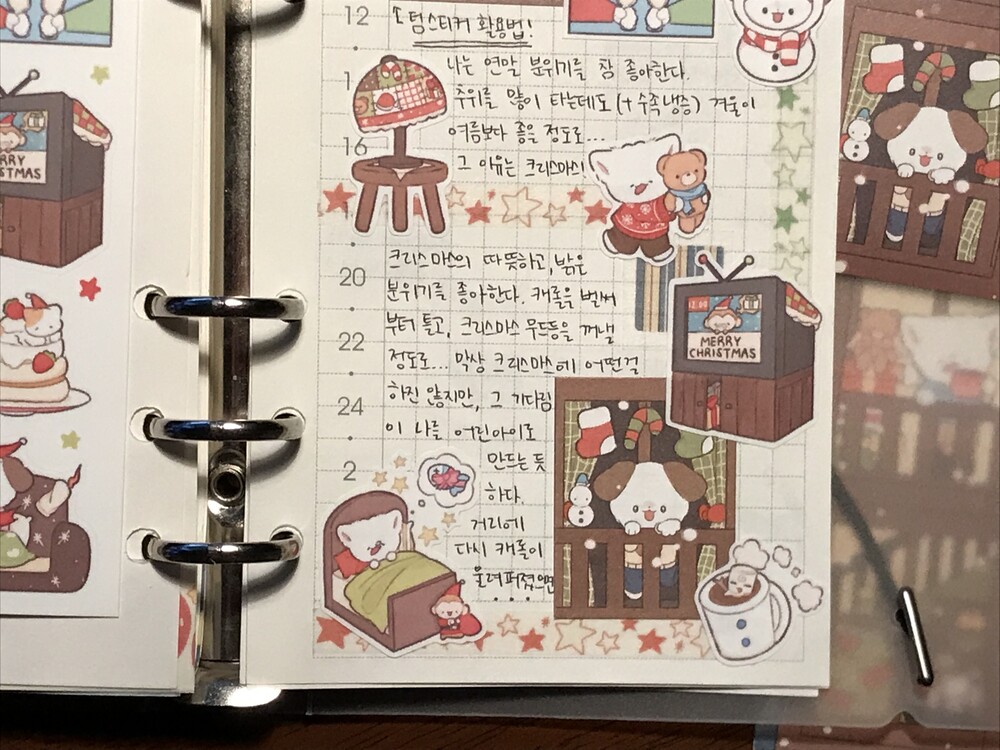 12
소텀스티커 활용법!
나는 연말 분위기를 참 좋아한다.
추위를 많이 타는데도 (+수족냉증) 겨울이
여름보다 좋을 정도로...
그 이유는 크리스마스!
크리스마스의 따뜻하고, 밝은
분위기를 좋아한다. 캐롤을 벌써
부터 틀고, 크리스마스 무드등을 꺼낼
정도로... 막상 크리스마스에 어떤걸
하진 않지만, 그 기다림
이 나를 어린아이로
만드는 듯
하다.
거리에
다시 캐롤이
울려퍼졌으면
...
1
16
1
20
22
24
2
MERRY
CHRISTMAS
RRY
STMAS